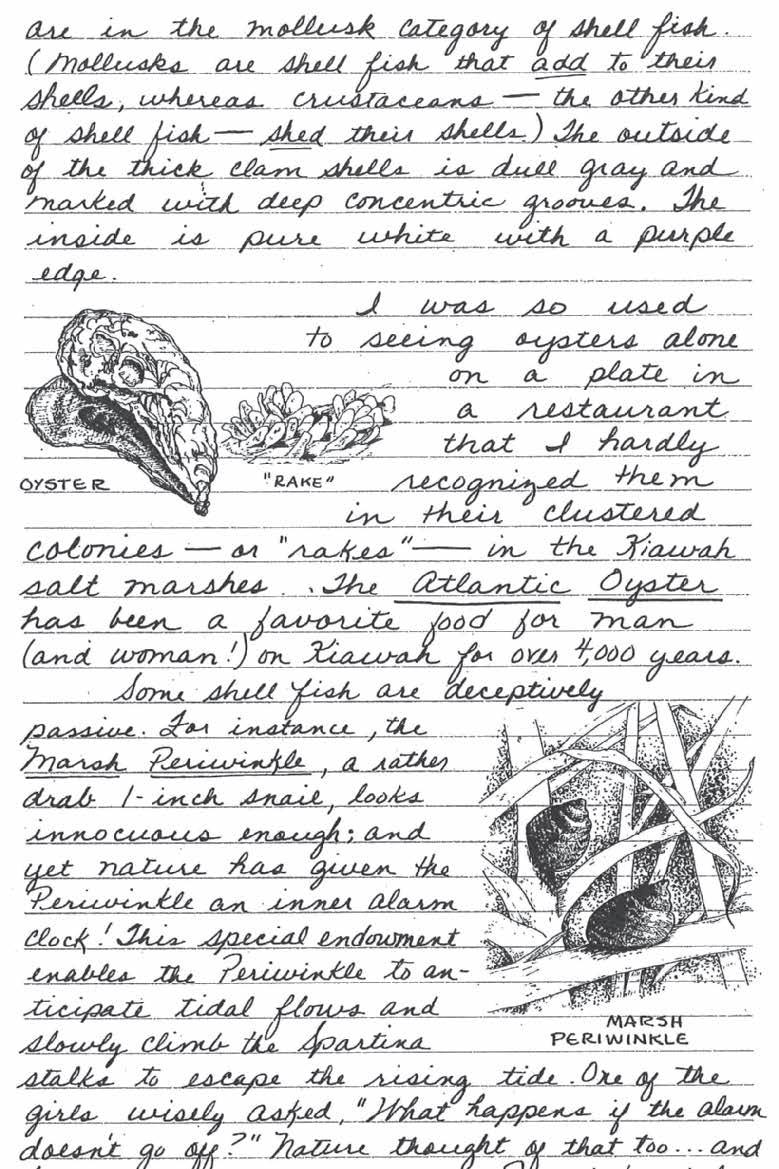 are in the mollusk category of shell fish.
(Mollusks are shell fish that add to their
shells, whereas crustaceans — the other kind
of shell fish — shed their shells.) The outside
of the thick clam shells is dull gray and
marked with deep concentric grooves. The
inside is pure white with a purple
edge.
I was so used
to seeing oysters alone
on a plate in
a restaurant
that I hardly
recognized them
in their clustered
OYSTER
"RAKE"
colonies — or "rakes" — in the Kiawah
salt marshes. The Atlantic Oyster
has been a favorite food for man
(and woman!) on Kiawah for over 4,000 years.
Some shell fish are deceptively
passive. For instance, the
Marsh Periwinkle, a rather
drab 1-inch snail, looks
innocuous enough; and
yet nature has given the
Periwinkle an inner alarm
clock! This special endowment
enables the Periwinkle to an-
ticipate tidal flows and
slowly climb the Spartina
MARSH
PERIWINKLE
stalks to escape the rising tide. One of the
girls wisely asked, "What happens if the alarm
doesn't go off?" Nature thought of that too... and